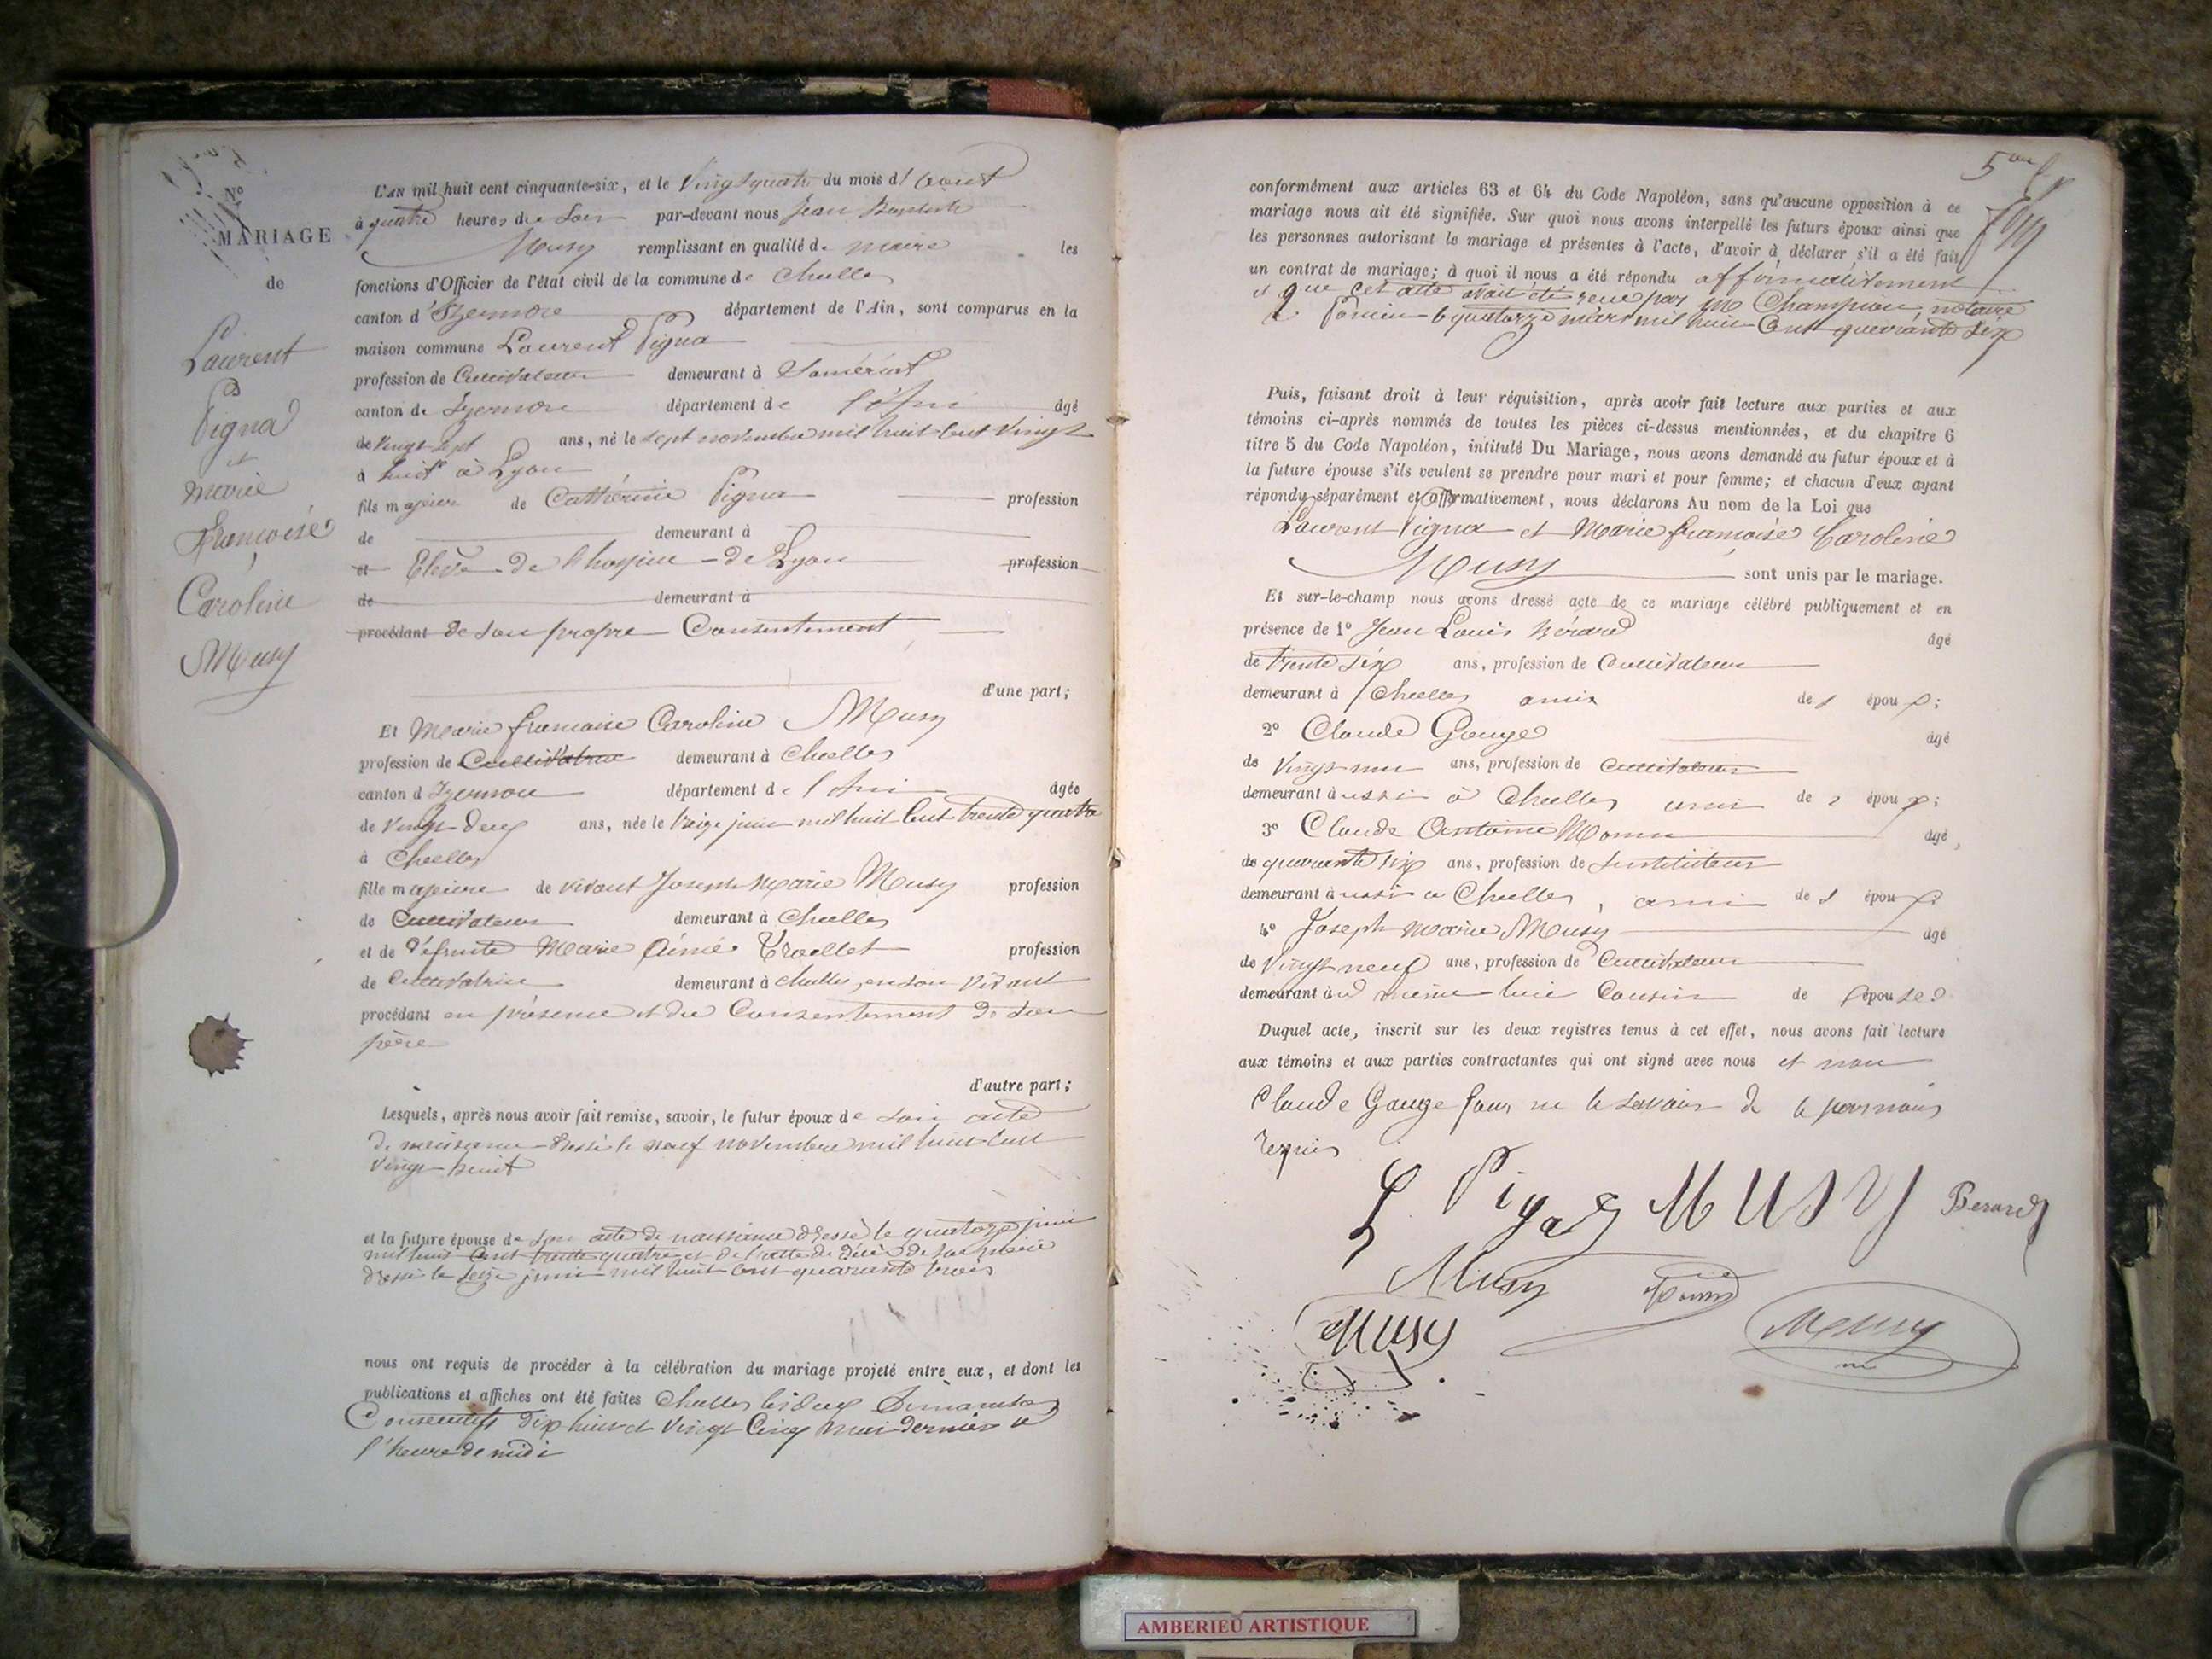 Nº
MARIAGE
de
Laurent
Pigna
et
Marie
Françoise
Caroline
Musy
L'AN mil huit cent cinquante-six, et le vingt quatre du mois d'aout
à quatre heures du soir par-devant nous Jean Baptiste
Musy remplissant en qualité de maire les
fonctions d'Officier de l'état civil de la commune de
canton d'Izernore département de l'Ain, sont comparus en la
maison commune Laurent Pigna
profession de Cultivateur demeurant à Samérint
canton de Izernore département de l'Ain âgé
de vingt sept ans, né le sept novembre mil huit cent vingt
à huit à Lyon
fils majeur de Cathérine Pigna profession
de demeurant à
et Elève de l'hospice de Lyon profession
de demeurant à
procédant de son propre Consentement
d'une part;
Et Marie francoise Caroline Musy
profession de Cultivatrice demeurant à
canton d'Izernore département de l'Ain âgée
de vingt deux ans, née le treize juin mil huit cent trente quatre
à
fille majeure de vivant Joseph Marie Musy profession
de Cultivateur demeurant à
et de défunte Marie Aimé profession
de Cultivatrice demeurant à en son vivant
procédant en présence et du Consentement de son
père
d'autre part;
Lesquels, après nous avoir fait remise, savoir, le futur époux de son acte
de naissance dressé le neuf novembre mil huit cent
vingt huit
et la future épouse de son acte de naissance dressé le quatorze juin
mil huit cent trente quatre et de l'acte de décès de sa mère
dressé le seize juin mil huit cent quarante trois
nous ont requis de procéder à la célébration du mariage projeté entre eux, et dont les
publications et affiches ont été faites les deux dimanches
Consecutifs dix huit et vingt cinq mai dernier à
l'heure de midi
5
conformément aux articles 63 et 64 du Code Napoléon, sans qu'aucune opposition à ce
mariage nous ait été signifiée. Sur quoi nous avons interpellé les futurs époux ainsi que
les personnes autorisant le mariage et présentes à l'acte, d'avoir à déclarer s'il a été fait
un contrat de mariage; à quoi il nous a été répondu affirmativement
et que cet acte avait été reçu par Me Champion, notaire
à le quatorze mars mil huit Cent quarante six
Puis, faisant droit à leur réquisition, après avoir fait lecture aux parties et aux
témoins ci-après nommés de toutes les pièces ci-dessus mentionnées, et du chapitre 6
titre 5 du Code Napoléon, intitulé Du Mariage, nous avons demandé au futur époux et à
la future épouse s'ils veulent se prendre pour mari et pour femme; et chacun d'eux ayant
répondu séparément et affirmativement, nous déclarons Au nom de la Loi que
Laurent Pigna et Marie françoise Caroline
Musy sont unis par le mariage.
Et sur-le-champ nous avons dressé acte de ce mariage célébré publiquement et en
présence de 1º Jean Louis Bérard âgé
de trente six ans, profession de Cultivateur
demeurant à amis de l'époux;
2º Claude Gouge âgé
de vingt un ans, profession de Cultivateur
demeurant aussi à ami de l'époux;
3º Claude Antoine âgé
de quarante six ans, profession de Instituteur
demeurant aussi à ami de l'époux;
4º Joseph Marie Musy âgé
de vingt neuf ans, profession de Cultivateur
demeurant au même lieu Cousin de l'épouse
Duquel acte, inscrit sur les deux registres tenus à cet effet, nous avons fait lecture
aux témoins et aux parties contractantes qui ont signé avec nous et non
Claude Gouge pour ne le savoir de ce
requis
L Pigna MUSY Berard
Musy
Musy Musy
AMBERIEU ARTISTIQUE